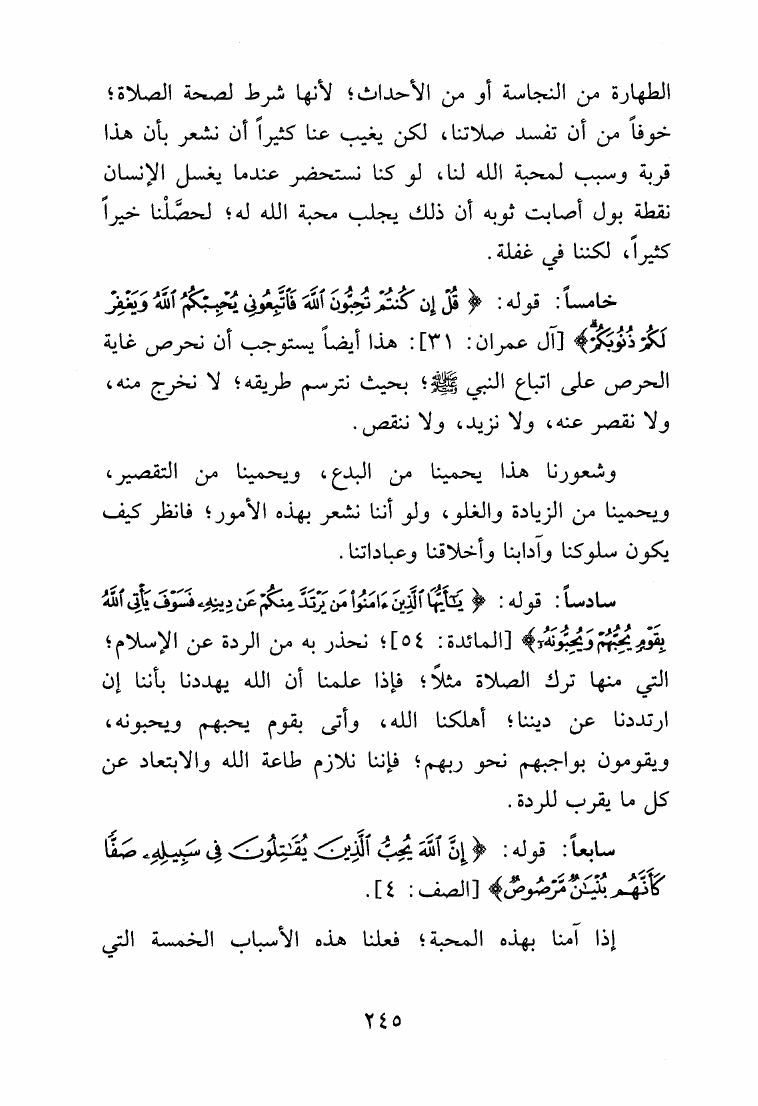 الطهارة من النجاسة أو من الأحداث؛ لأنها شرط لصحة الصلاة؛
خوفاً من أن تفسد صلاتنا، لكن يغيب عنا كثيراً أن نشعر بأن هذا
قربة وسبب لمحبة الله لنا، لو كنا نستحضر عندما يغسل الإنسان
نقطة بول أصابت ثوبه أن ذلك يجلب محبة الله له؛ لحصَّلْنا خيراً
كثيراً، لكننا في غفلة.
خامساً: قوله: ﴿قُلْ إِن كُنتُمْ تُحِبُّونَ ٱللَّهَ فَٱتَّبِعُونِى يُحْبِبْكُمُ ٱللَّهُ وَيَغْفِرْ
لَكُمْ ذُنُوبَكُمْ ۗ﴾ [آل عمران: ٣١]: هذا أيضاً يستوجب أن نحرص غاية
الحرص على اتباع النبي ﷺ؛ بحيث نترسم طريقه؛ لا نخرج منه،
ولا نقصر عنه، ولا نزيد، ولا ننقص.
وشعورنا هذا يحمينا من البدع، ويحمينا من التقصير،
ويحمينا من الزيادة والغلو، ولو أننا نشعر بهذه الأمور؛ فانظر كيف
يكون سلوكنا وآدابنا وأخلاقنا وعباداتنا.
سادساً: قوله: ﴿يَٰٓأَيُّهَا ٱلَّذِينَ ءَامَنُوا۟ مَن يَرْتَدَّ مِنكُمْ عَن دِينِهِۦ فَسَوْفَ يَأْتِى ٱللَّهُ
بِقَوْمٍ يُحِبُّهُمْ وَيُحِبُّونَهُۥٓ﴾ [المائدة: ٥٤]؛ نحذر به من الردة عن الإسلام؛
التي منها ترك الصلاة مثلاً؛ فإذا علمنا أن الله يهددنا بأننا إن
ارتددنا عن ديننا؛ أهلكنا الله، وأتى بقوم يحبهم ويحبونه،
ويقومون بواجبهم نحو ربهم؛ فإننا نلازم طاعة الله والابتعاد عن
كل ما يقرب للردة.
سابعاً: قوله: ﴿إِنَّ ٱللَّهَ يُحِبُّ ٱلَّذِينَ يُقَٰتِلُونَ فِى سَبِيلِهِۦ صَفًّا
كَأَنَّهُم بُنْيَٰنٌ مَّرْصُوصٌ﴾ [الصف: ٤].
إذا آمنا بهذه المحبة؛ فعلنا هذه الأسباب الخمسة التي
٢٤٥